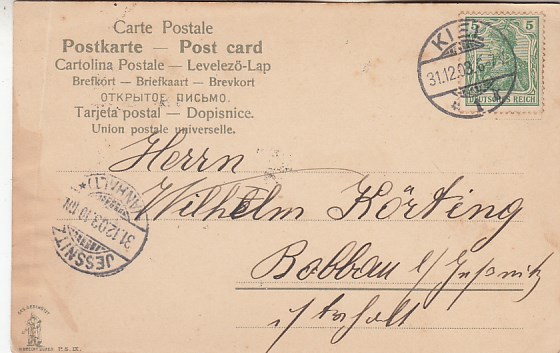 Carte Postale
Postkarte — Post card
Cartolina Postale — Levelező-Lap
Brefkórt — Briefkaart — Brevkort
ОТКРЫТОЕ ПИСЬМО.
Tarjeta postal — Dopisnice.
Union postale universelle.
5 5
KIEL
31.12.03.
* 1
DEUTSCHES REICH
Herrn
Wilhelm Körting
Bobbau b/Jessnitz
i/Anhalt
JESSNITZ
31.12.03.10
(ANHALT)*
P. S. IX.